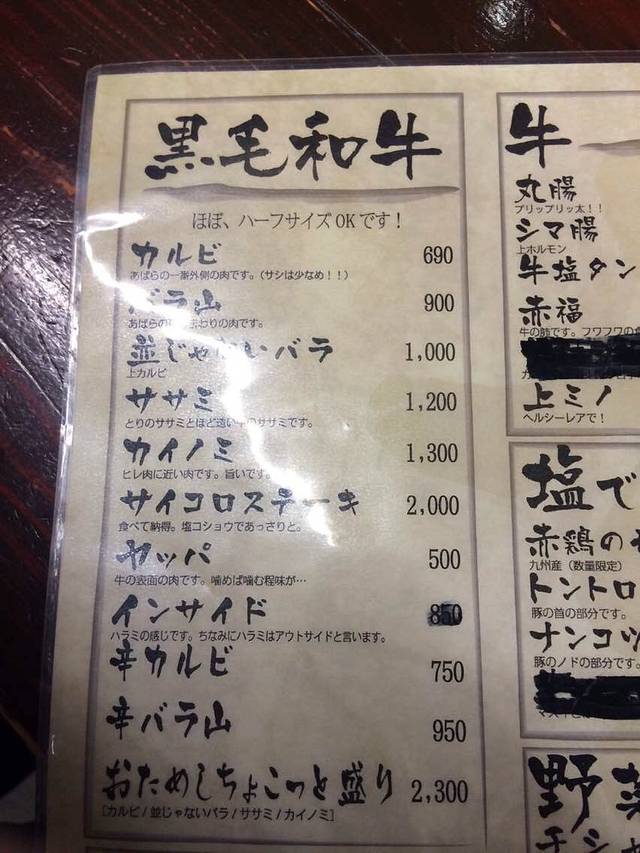 黒毛和牛
ほぼ、ハーフサイズOKです！
カルビ 690
あばらの一番外側の肉です。（サシは少なめ！！）
バラ山 900
あばらの まわりの肉です。
並じゃないバラ 1,000
上カルビ
ササミ 1,200
とりのササミとほど遠い牛のササミです。
カイノミ 1,300
ヒレ肉に近い肉です。旨いです。
サイコロステーキ 2,000
食べて納得。塩コショウであっさりと。
ヤッパ 500
牛の表面の肉です。噛めば噛む程味が…
インサイド 850
ハラミの感じです。ちなみにハラミはアウトサイドと言います。
辛カルビ 750
辛バラ山 950
おためしちょこっと盛り 2,300
［カルビ/並じゃないバラ/ササミ/カイノミ］
牛
丸腸
プリップリッ太！！
シマ腸
上ホルモン
牛塩タン
赤福
牛の肺です。フワフワの
上ミノ
ヘルシーレアで！
塩で
赤鶏の
九州産（数量限定）
トントロ
豚の首の部分です。
ナンコツ
豚のノドの部分です。
野菜
チシ